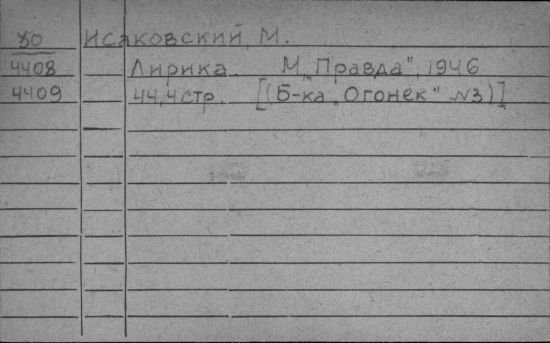 80 Исаковский, М.
4408 Лирика. М, "Правда", 1946.
4409 44,4стр. [(Б-ка "Огонёк" №3)]